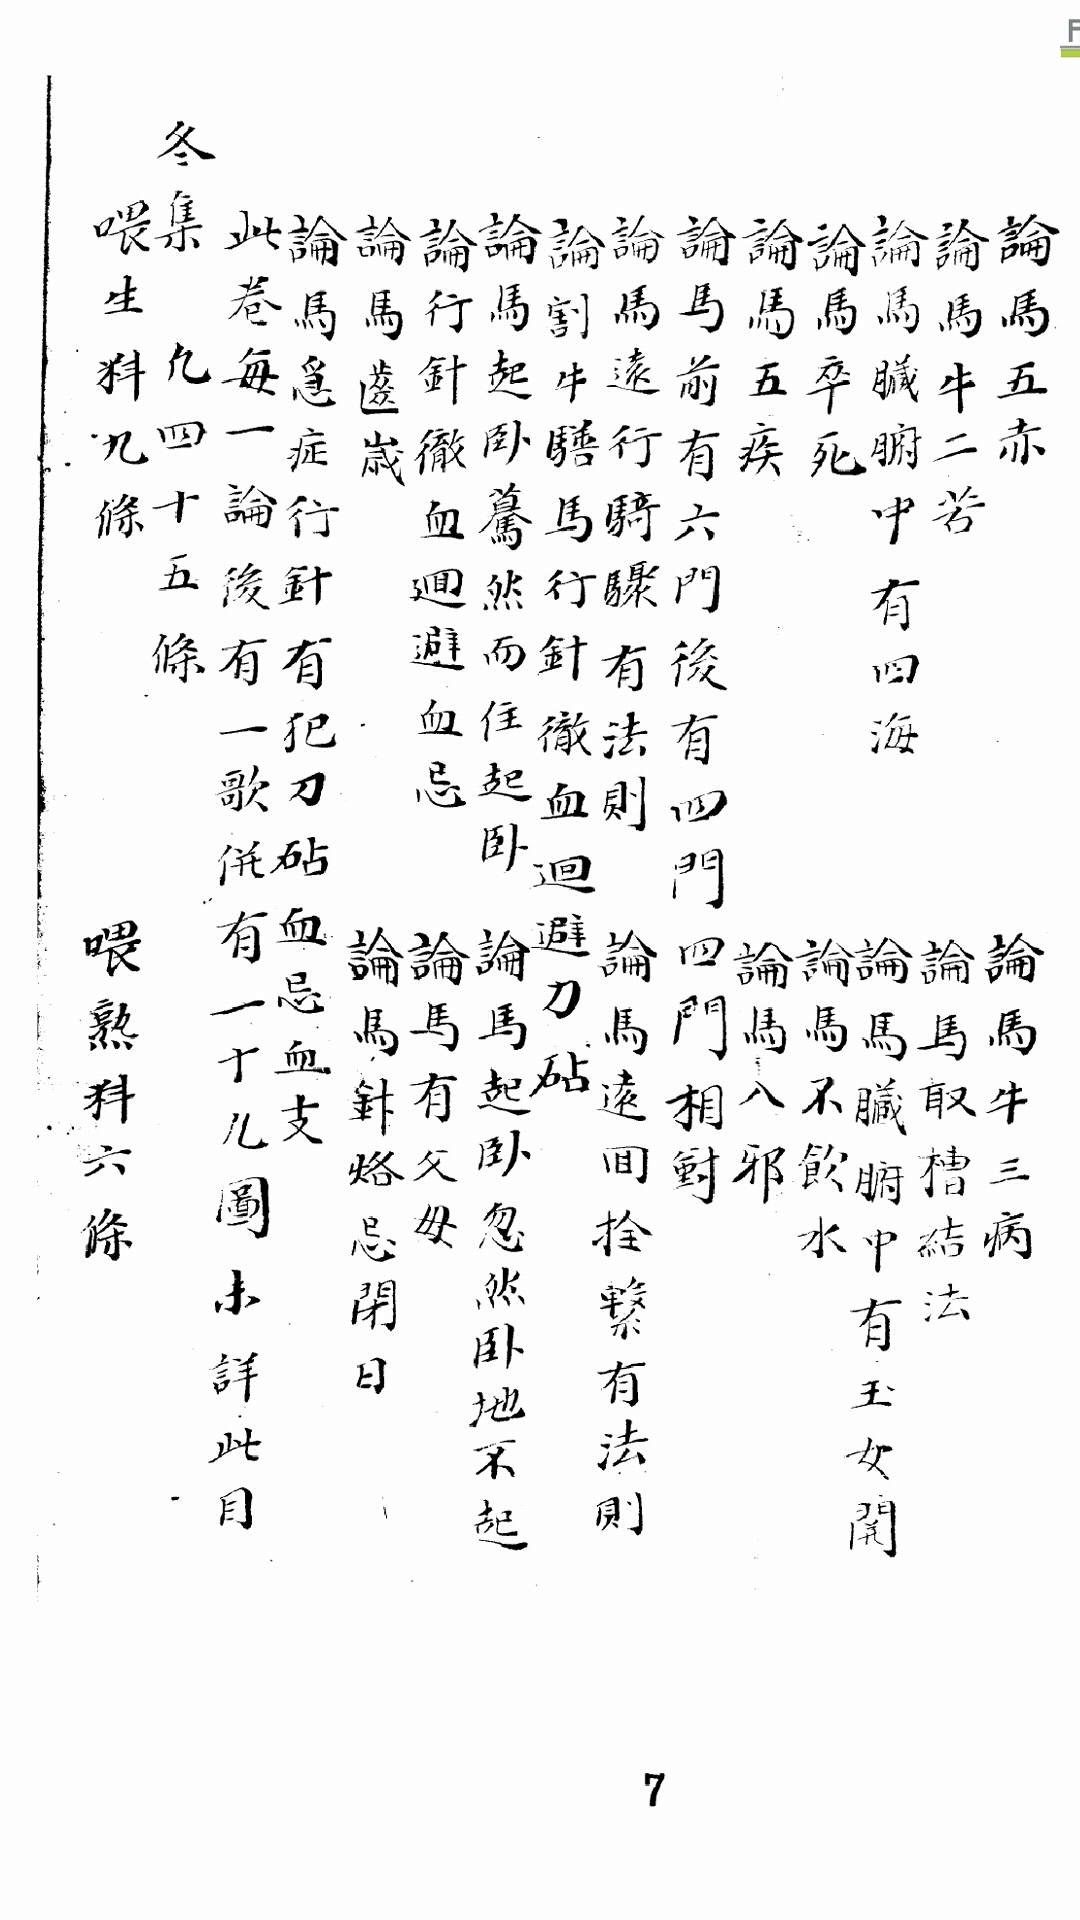 論馬五赤 論馬牛三病
論馬牛二苦 論馬取槽結法
論馬臟腑中有四海 論馬臟腑中有玉女關
論馬卒死 論馬不飲水
論馬五疾 論馬八邪
論馬前有六門後有四門四門相對
論馬遠行騎驟有法則 論馬遠回拴繫有法則
論割牛騸馬行針徹血迴避刀砧
論馬起卧驀然而住起卧 論馬起卧忽然卧地不起
論行針徹血迴避血忌 論馬有父母
論馬齒歲 論馬針烙忌閉日
論馬急症行針有犯刀砧血忌血支
此卷每一論後有一歌併有一十九圖未詳此目
冬集 凡四十五條
喂生料九條 喂熟料六條
7